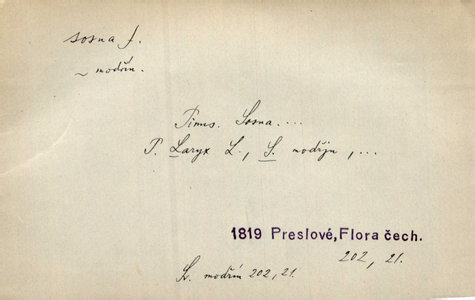 sosna f.
~ modřín.
Pinus. Sosna....
P. Laryx L., S. modřjn,...
1819 Preslové, Flora čech.
202, 21.
modřín 202, 21.